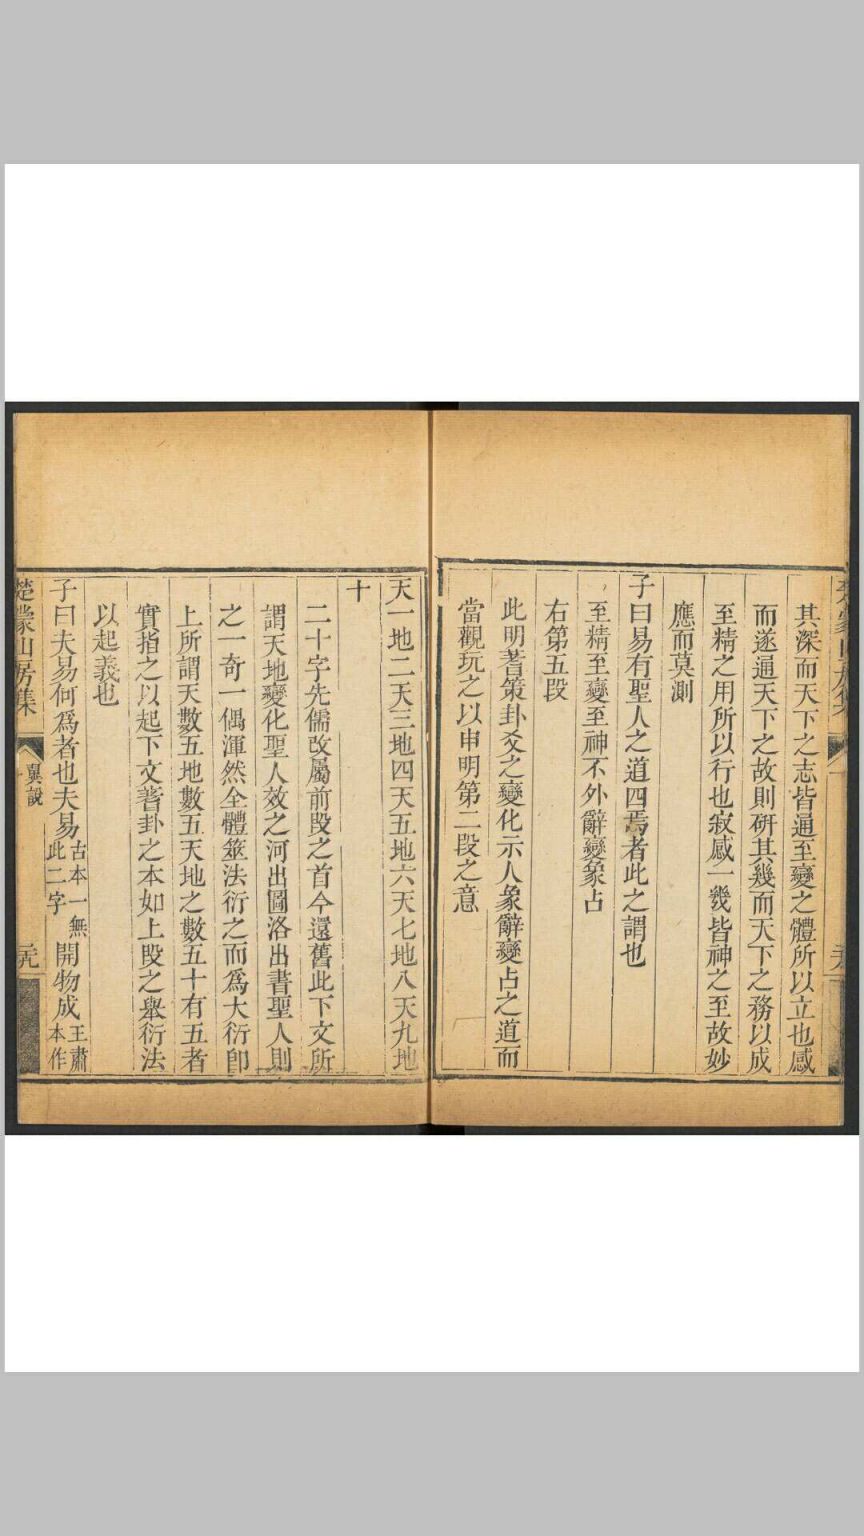 其深而天下之志皆通至變之體所以立也感
而遂通天下之故則硏其幾而天下之務以成
至精之用所以行也寂感一幾皆神之至故妙
應而莫測
子曰易有聖人之道四焉者此之謂也
至精至變至神不外辭變象占
右第五段
此明蓍策卦爻之變化示人象辭變占之道而
當觀玩之以申明第二段之意
天一地二天三地四天五地六天七地八天九地
十
二十字先儒改屬前段之首今還舊此下文所
謂天地變化聖人效之河出圖洛出書聖人則
之一奇一偶渾然全體筮法衍之而爲大衍卽
上所謂天數五地數五天地之數五十有五者
實指之以起下文蓍卦之本如上段之舉衍法
以起義也
子曰夫易何爲者也夫易古本一無此二字開物成王肅本作
楚蒙山房集
翼說